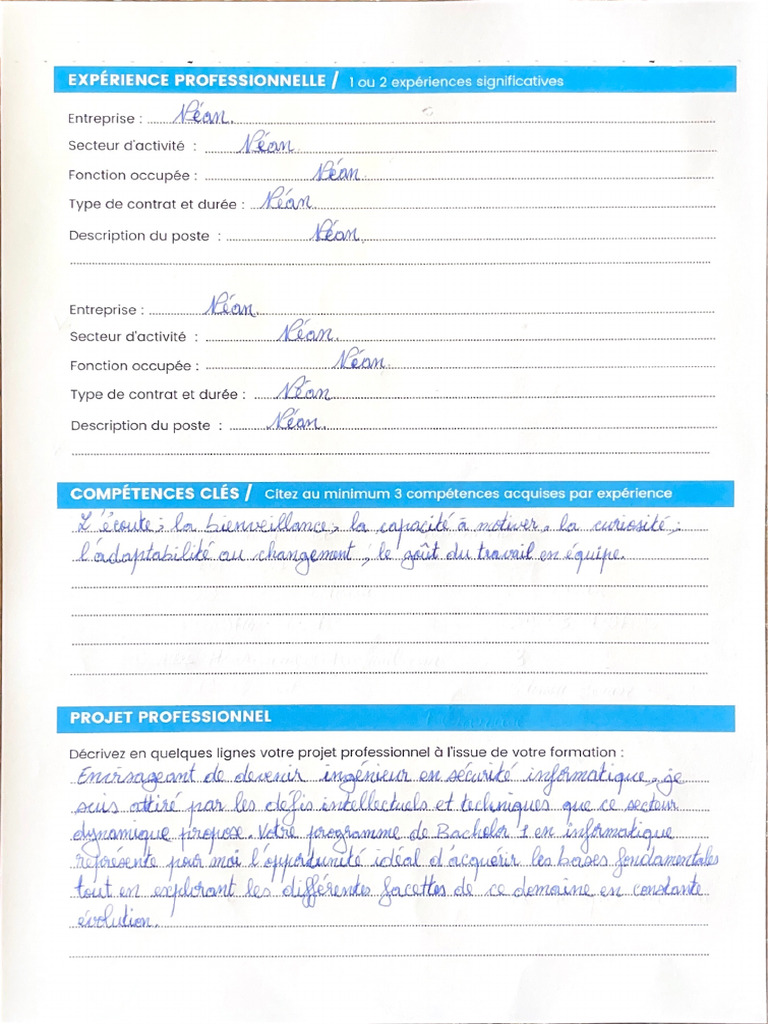 EXPÉRIENCE PROFESSIONNELLE / 1 ou 2 expériences significatives
Entreprise : Néan.
Secteur d'activité : Néan
Fonction occupée : Néan.
Type de contrat et durée : Néan
Description du poste : Néan.
Entreprise : Néan.
Secteur d'activité : Néan.
Fonction occupée : Néan.
Type de contrat et durée : Néan
Description du poste : Néan.
COMPÉTENCES CLÉS / Citez au minimum 3 compétences acquises par expérience
L'écoute ; la bienveillance ; la capacité à motiver, la curiosité ;
l'adaptabilité au changement ; le goût du travail en équipe.
PROJET PROFESSIONNEL
Décrivez en quelques lignes votre projet professionnel à l'issue de votre formation :
Envisageant de devenir ingénieur en sécurité informatique, je
suis attiré par les défis intellectuels et techniques que ce secteur
dynamique propose. Votre programme de Bachelor 1 en informatique
représente pour moi l'opportunité idéal d'acquérir les bases fondamentales
tout en explorant les différentes facettes de ce domaine en constante
évolution.